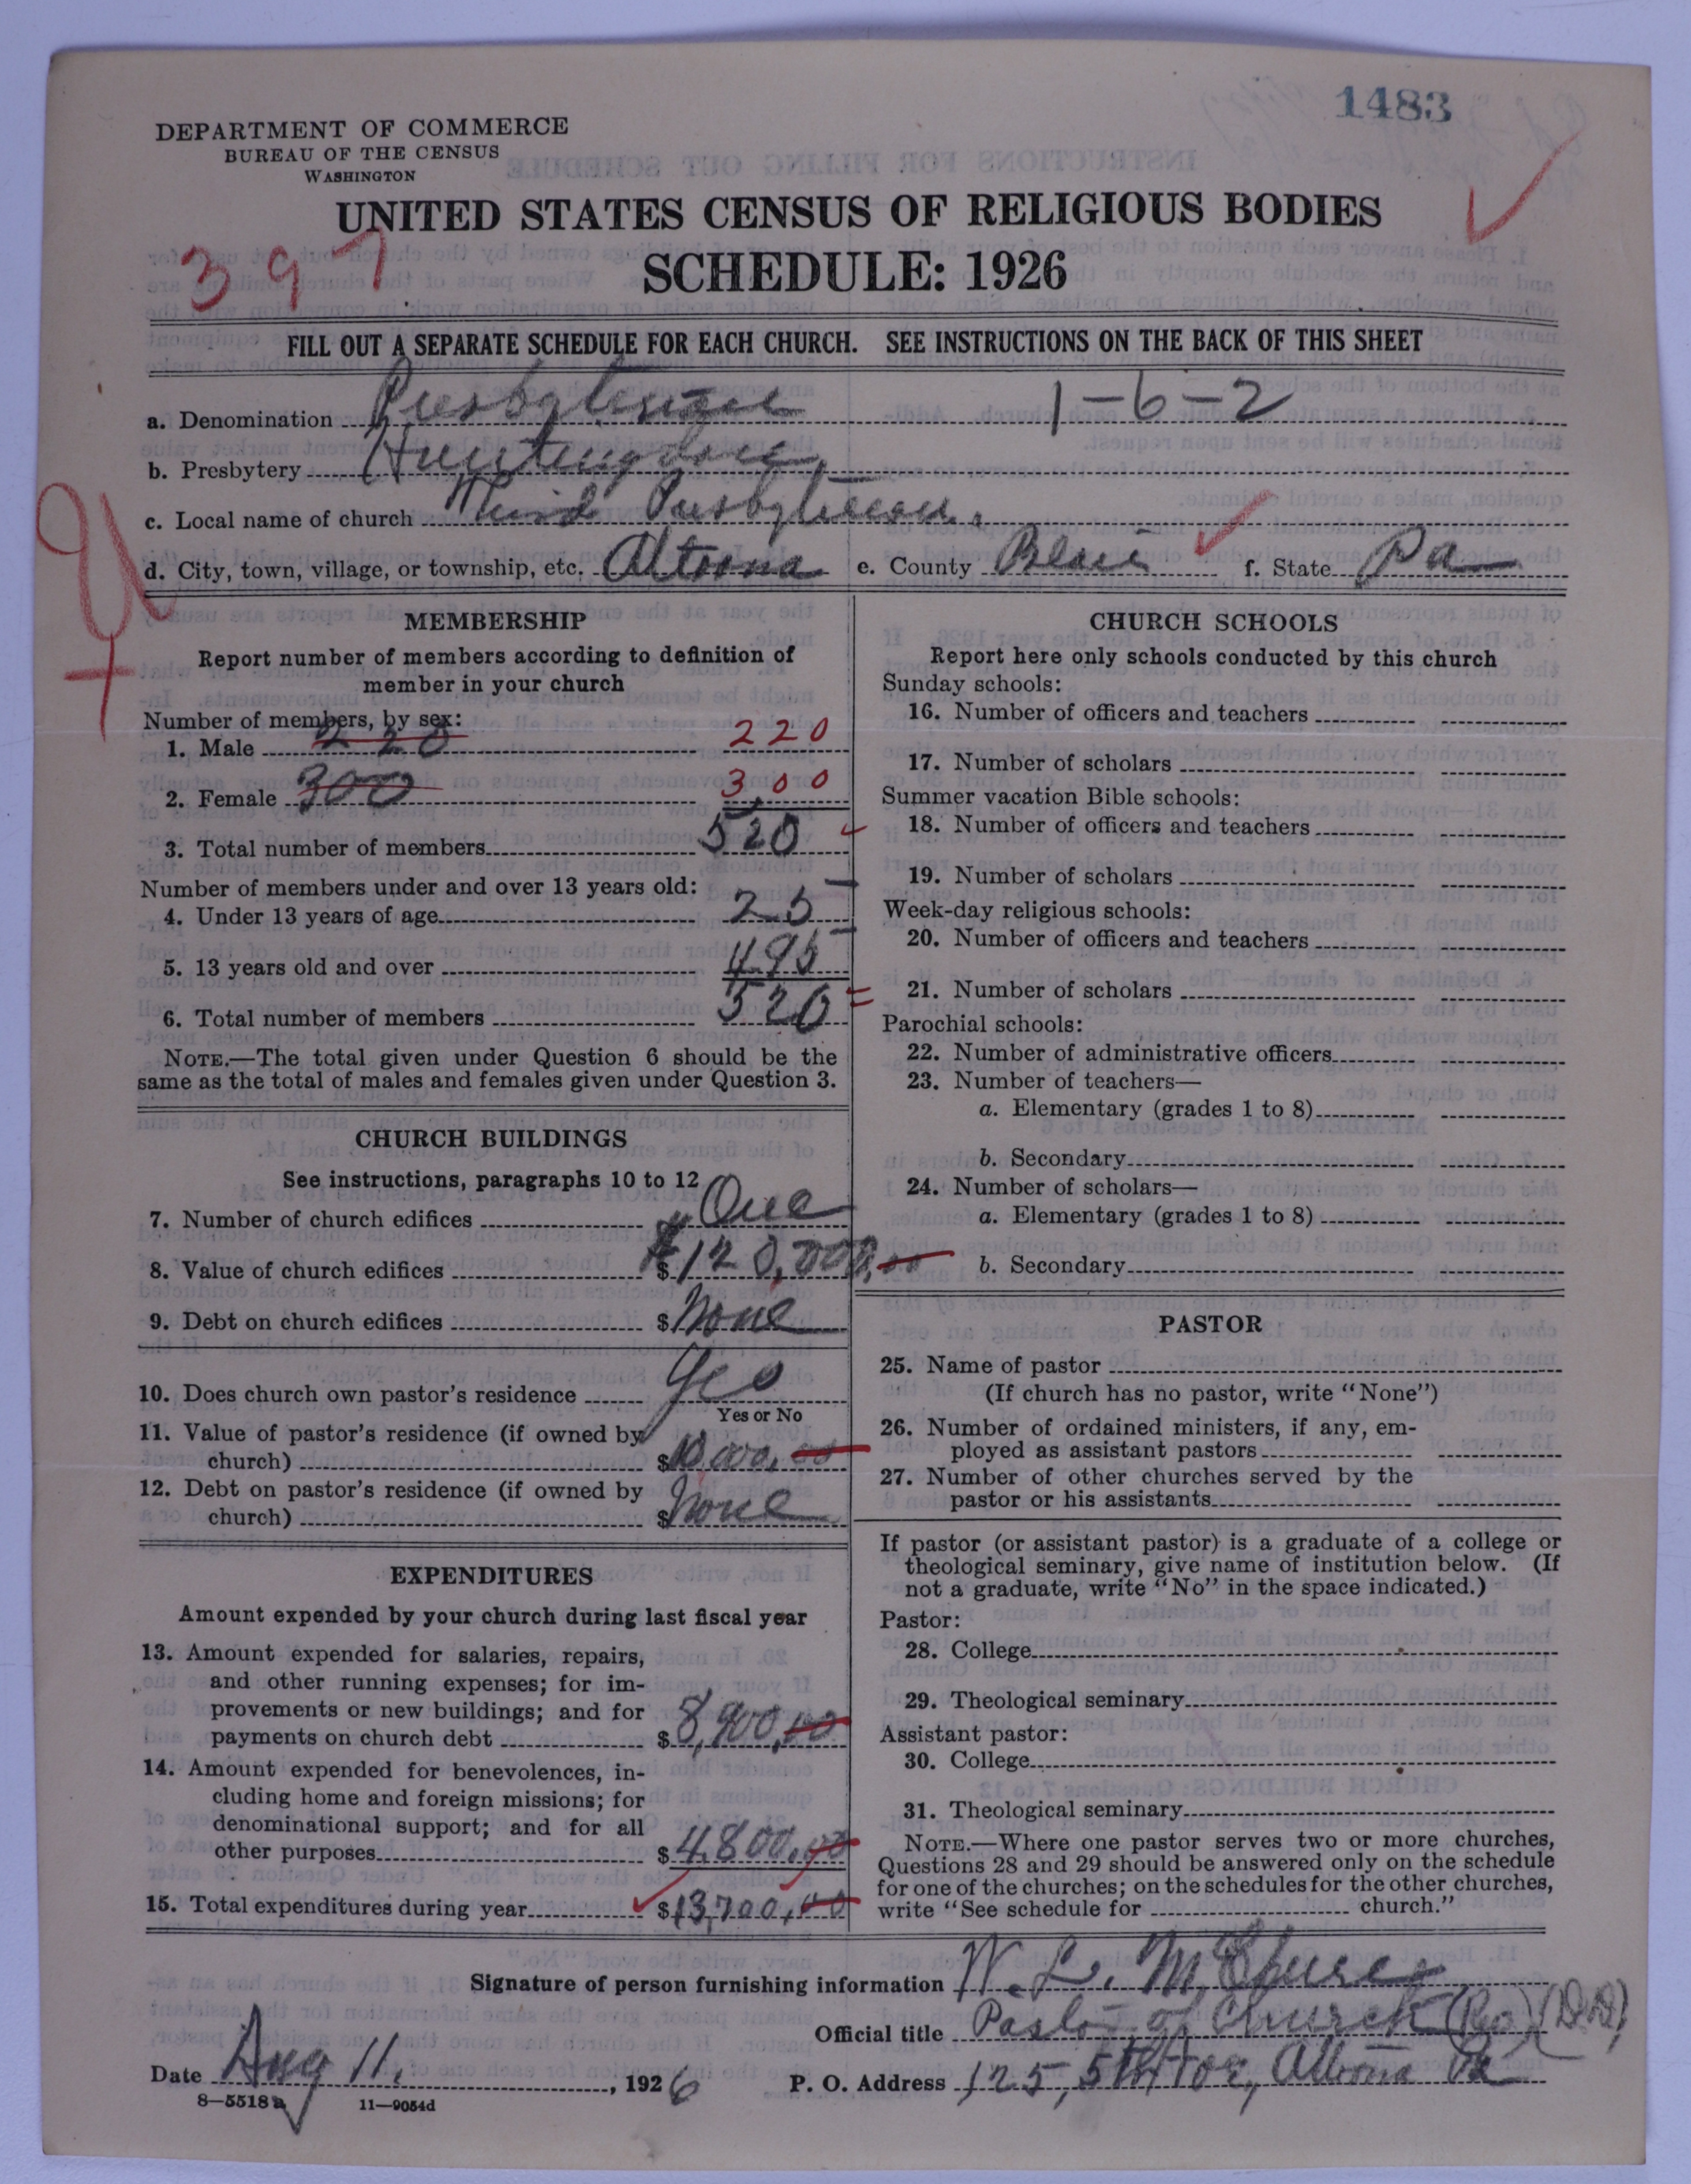 1483
DEPARTMENT OF COMMERCE
BUREAU OF THE CENSUS
WASHINGTON
UNITED STATES CENSUS OF RELIGIOUS BODIES
SCHEDULE: 1926
397
FILL OUT A SEPARATE SCHEDULE FOR EACH CHURCH. SEE INSTRUCTIONS ON THE BACK OF THIS SHEET
a. Denomination Presbyterian 1-6-2
b. Presbytery Huntingdon,
c. Local name of church Third Presbyterian.
d. City, town, village, or township, etc. Altoona e. County Blair f. State Pa
MEMBERSHIP
Report number of members according to definition of
member in your church
Number of members, by sex:
1. Male 220 220
2. Female 300 300
3. Total number of members 520
Number of members under and over 13 years old:
4. Under 13 years of age 25
5. 13 years old and over 495
6. Total number of members 520
NOTE.—The total given under Question 6 should be the
same as the total of males and females given under Question 3.
CHURCH BUILDINGS
See instructions, paragraphs 10 to 12
7. Number of church edifices One
8. Value of church edifices $120,000.00
9. Debt on church edifices $None
10. Does church own pastor's residence Yes
Yes or No
11. Value of pastor's residence (if owned by
church) $10,000.00
12. Debt on pastor's residence (if owned by
church) $None
EXPENDITURES
Amount expended by your church during last fiscal year
13. Amount expended for salaries, repairs,
and other running expenses; for im-
provements or new buildings; and for
payments on church debt $8,900.00
14. Amount expended for benevolences, in-
cluding home and foreign missions; for
denominational support; and for all
other purposes $4,800.00
15. Total expenditures during year $13,700.00
CHURCH SCHOOLS
Report here only schools conducted by this church
Sunday schools:
16. Number of officers and teachers
17. Number of scholars
Summer vacation Bible schools:
18. Number of officers and teachers
19. Number of scholars
Week-day religious schools:
20. Number of officers and teachers
21. Number of scholars
Parochial schools:
22. Number of administrative officers
23. Number of teachers—
a. Elementary (grades 1 to 8)
b. Secondary
24. Number of scholars—
a. Elementary (grades 1 to 8)
b. Secondary
PASTOR
25. Name of pastor
(If church has no pastor, write "None")
26. Number of ordained ministers, if any, em-
ployed as assistant pastors
27. Number of other churches served by the
pastor or his assistants
If pastor (or assistant pastor) is a graduate of a college or
theological seminary, give name of institution below. (If
not a graduate, write "No" in the space indicated.)
Pastor:
28. College
29. Theological seminary
Assistant pastor:
30. College
31. Theological seminary
NOTE.—Where one pastor serves two or more churches,
Questions 28 and 29 should be answered only on the schedule
for one of the churches; on the schedules for the other churches,
write "See schedule for church."
Signature of person furnishing information W. L. McClure
Official title Pastor of Church (Rev) (D.D.)
Date Aug 11, 1926 P. O. Address 125, 5th Ave, Altoona Pa
8—5518a 11—9054d